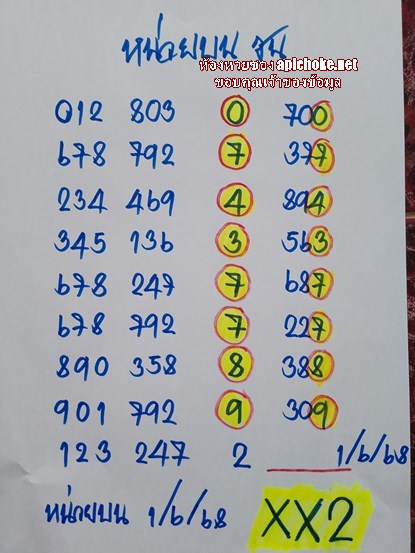 หน่วยบน จน
ห้องหวยซอง aplchoke.net
ขอบคุณเจ้าของข้อมูล
012 803 0 700
678 792 7 377
234 469 4 894
345 136 3 563
678 247 7 687
678 792 7 227
890 358 8 388
901 792 9 309
123 247 2 1/6/68
หน่วยบน 1/6/68 XX2